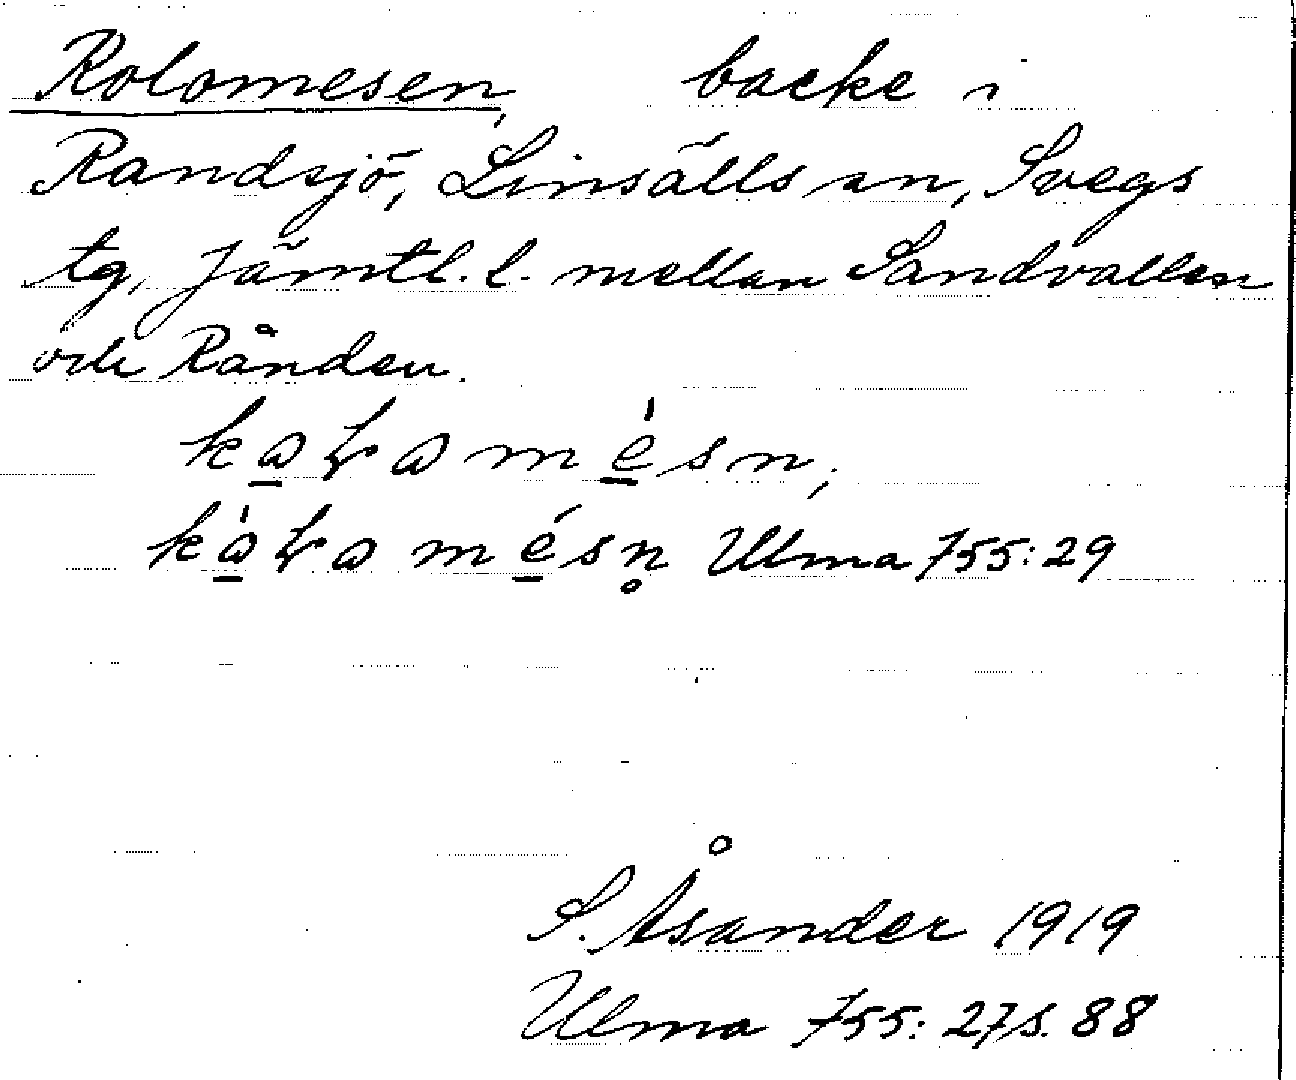 Kolomesen, backe i
Randsjö, Linsälls sn, Svegs
tg, Jämtl. l. mellan Sandvallen
och Rånden.
kaɽamésn,
kàɽamésn̥ Ulma 755:29
S. Åsander 1919
Ulma 755:27 s. 88